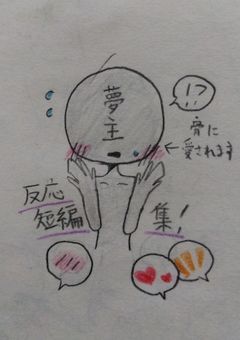 夢主
!?
骨に
愛されます
反応
短編
集!